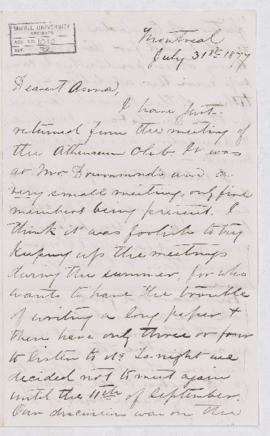 McGILL UNIVERSITY
ARCHIVES
ACC. NO.
REF.
Montreal
July 31st 1877
Dearest Anna,
I have just
returned from the meeting of
the Athenaeum Club. It was
at Mrs Drummond's and a
very small meeting, only five
members being present. I
think it was foolish to try
keeping up the meetings
during the summer, for who
wants to have the trouble
of writing a long paper &
then have only three or four
to listen to it. To-night we
decided not to meet again
until the 11th of September.
Our discussion was on the